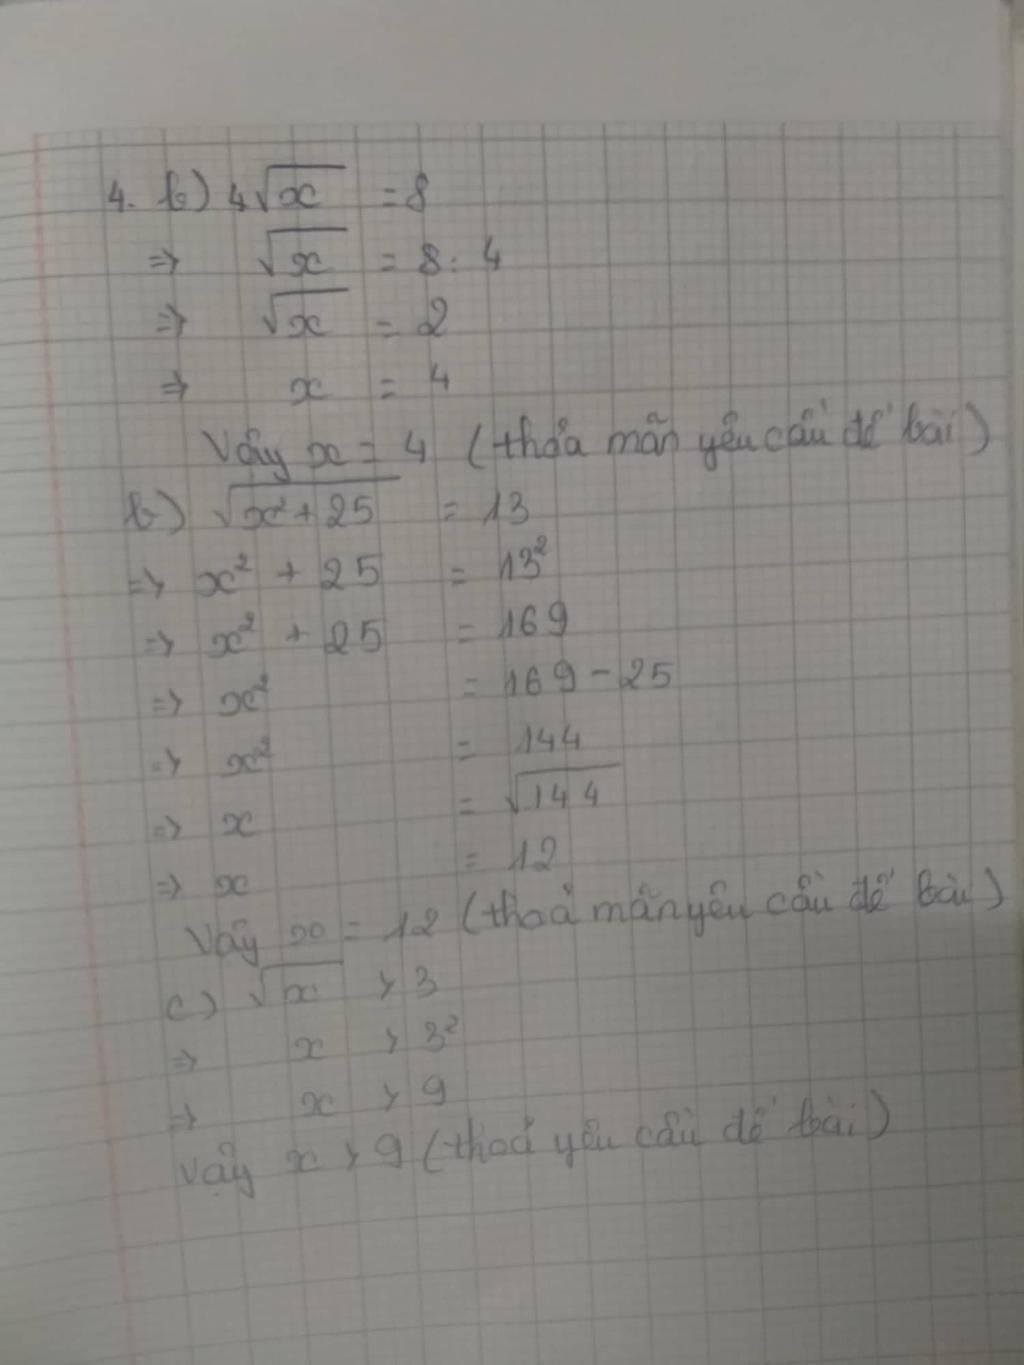 4. b) 4√x = 8
=> √x = 8 : 4
=> √x = 2
=> x = 4
Vậy x = 4 (thỏa mãn yêu cầu đề bài)
b) √x² + 25 = 13
=> x² + 25 = 13²
=> x² + 25 = 169
=> x² = 169 - 25
=> x² = 144
=> x = √144
=> x = 12
Vậy x = 12 (thoả mãn yêu cầu đề bài)
c) √x > 3
=> x > 3²
=> x > 9
Vậy x > 9 (thoả yêu cầu đề bài)